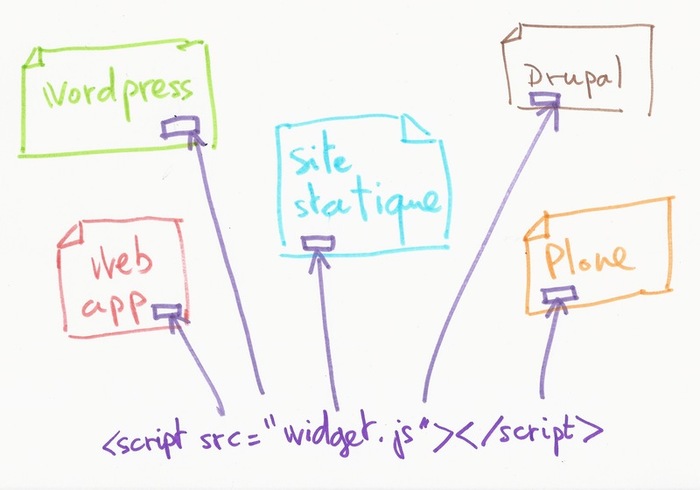 Wordpress
Drupal
Site
statique
Web
app
Plone
<script src="widget.js"></script>